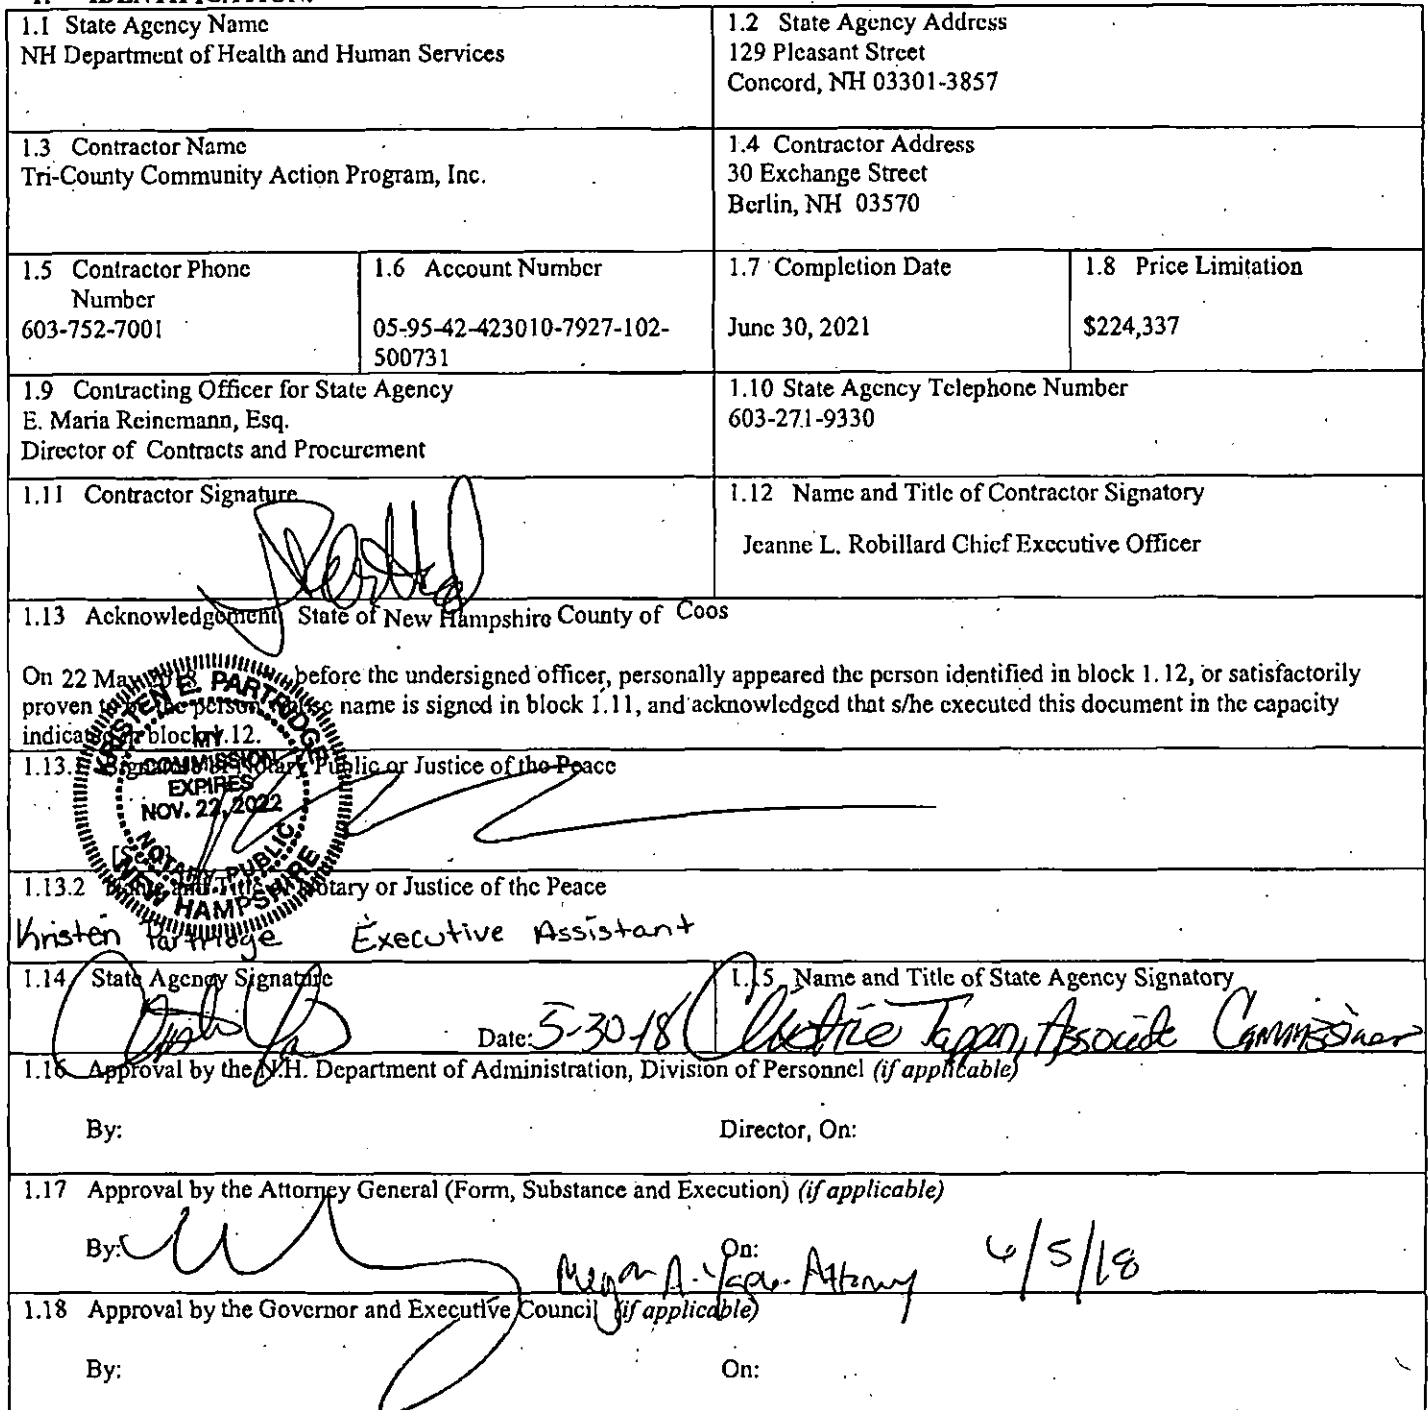 1. IDENTIFICATION.
1.1 State Agency Name
NH Department of Health and Human Services
1.2 State Agency Address
129 Pleasant Street
Concord, NH 03301-3857
1.3 Contractor Name
Tri-County Community Action Program, Inc.
1.4 Contractor Address
30 Exchange Street
Berlin, NH 03570
1.5 Contractor Phone
Number
603-752-7001
1.6 Account Number
05-95-42-423010-7927-102-
500731
1.7 Completion Date
June 30, 2021
1.8 Price Limitation
$224,337
1.9 Contracting Officer for State Agency
E. Maria Reinemann, Esq.
Director of Contracts and Procurement
1.10 State Agency Telephone Number
603-271-9330
1.11 Contractor Signature
1.12 Name and Title of Contractor Signatory
Jeanne L. Robillard Chief Executive Officer
1.13 Acknowledgement State of New Hampshire County of Coos
On 22 May 2018 before the undersigned officer, personally appeared the person identified in block 1.12, or satisfactorily
proven to be the person whose name is signed in block 1.11, and acknowledged that s/he executed this document in the capacity
indicated in block 1.12.
KRISTEN E. PARTRIDGE
MY
COMMISSION
EXPIRES
NOV. 22, 2022
NOTARY PUBLIC
NEW HAMPSHIRE
1.13.1 Signature of Notary Public or Justice of the Peace
[Seal]
1.13.2 Name and Title of Notary or Justice of the Peace
Kristen Partridge Executive Assistant
1.14 State Agency Signature
Date: 5-30-18
1.15 Name and Title of State Agency Signatory
Christine Tappan, Associate Commissioner
1.16 Approval by the N.H. Department of Administration, Division of Personnel (if applicable)
By: Director, On:
1.17 Approval by the Attorney General (Form, Substance and Execution) (if applicable)
By: On:
Megan A. Attorney 6/5/18
1.18 Approval by the Governor and Executive Council (if applicable)
By: On: